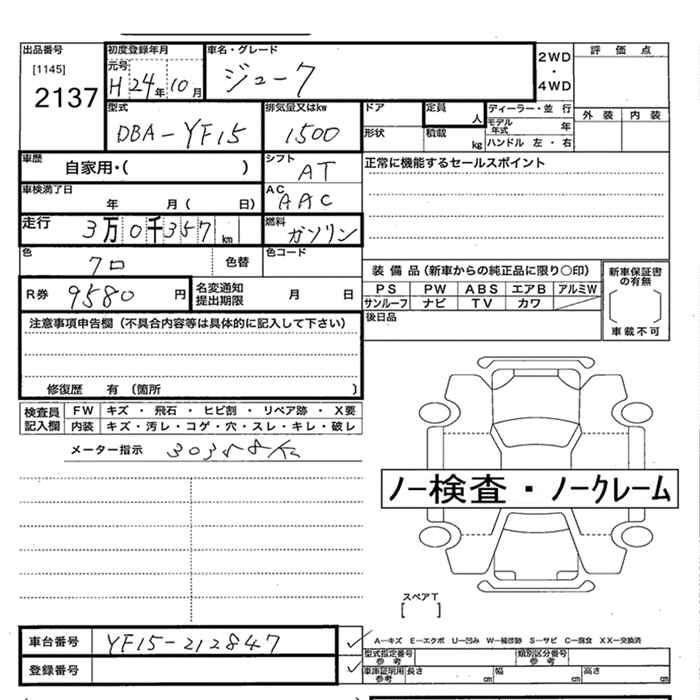 出品番号 初度登録年月 車名・グレード 2WD 評価点
[1145] 元号 ジューク ・
2137 H 24年 10月 4WD
型式 排気量又はkw ドア 定員 ディーラー・並行 外装 内装
DBA-YF15 1500 人 モデル年式 年
形状 積載 kg ハンドル 左・右
車歴 自家用・( ) シフト AT 正常に機能するセールスポイント
車検満了日 年 月( 日) AC AAC
走行 3万0千357km 燃料 ガソリン
色 クロ 色替 色コード
装備品(新車からの純正品に限り○印) 新車保証書の有無
R券 9580円 名変通知提出期限 月 日 PS PW ABS エアB アルミW
サンルーフ ナビ TV カワ 車載不可
注意事項申告欄(不具合内容等は具体的に記入して下さい) 後日品
修復歴 有 (箇所 )
検査員記入欄 FW キズ・飛石・ヒビ割・リペア跡・X要
内装 キズ・汚レ・コゲ・穴・スレ・キレ・破レ
メーター指示 30358K
ノー検査・ノークレーム
スペアT
[ ]
車台番号 YF15-212847 A―キズ E―エクボ U―凹み W―補修跡 S―サビ C―腐食 XX―交換済
型式指定番号 参考 類別区分番号 参考
登録番号 車庫証明用参考 長さ cm 幅 cm 高さ cm